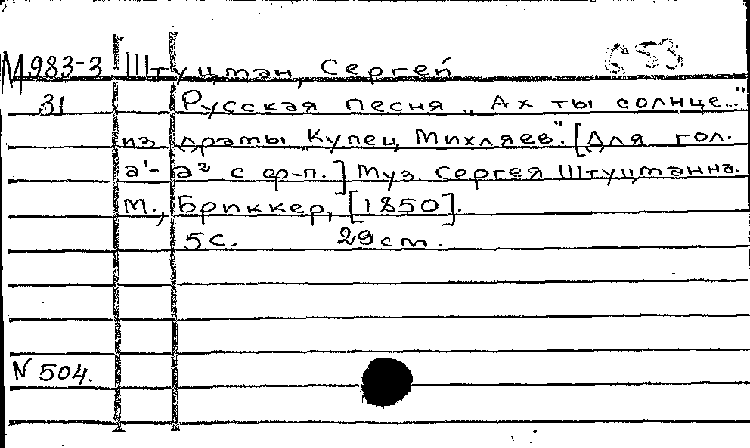 М983-3 Штуцман, Сергей 653
31 Русская песня „Ах ты солнце..."
из драмы „Купец Михляев". [Для гол.
а¹-а² с ф-п.] Муз. Сергея Штуцманна.
М., Бриккер, [1850].
5с. 29см.
N 504.